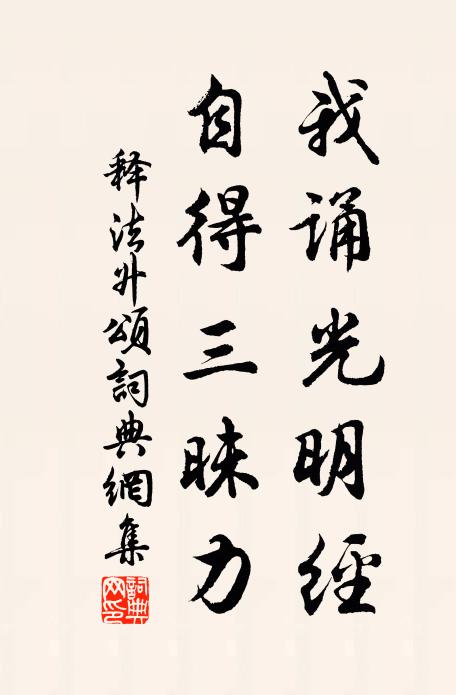 我诵光明經
自得三昧力
释法升頌詞典網集
詞典
网印